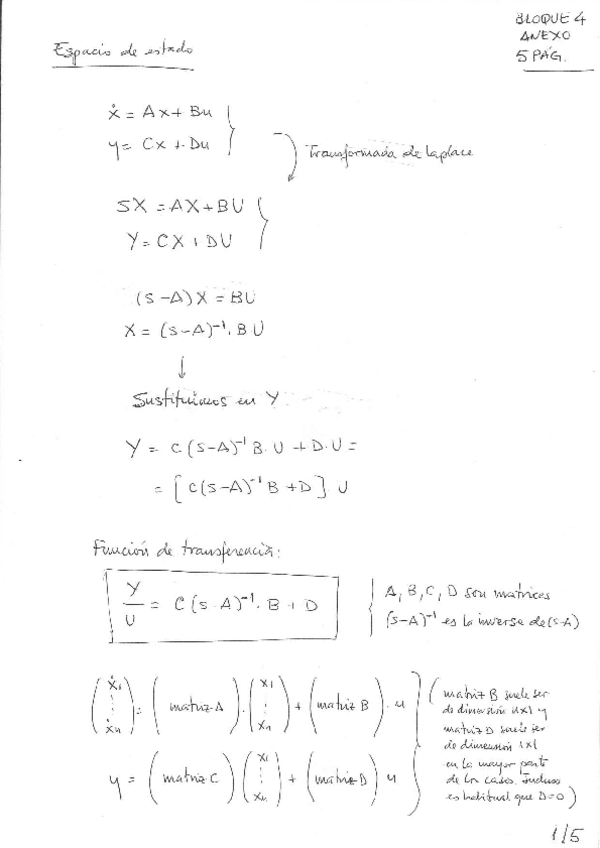 BLOQUE 4
ANEXO
5 PÁG.
Espacio de estado
ẋ = Ax + Bu
y = Cx + Du
Transformada de Laplace
SX = AX + BU
Y = CX + DU
(s-A)X = BU
X = (s-A)⁻¹·BU
↓
Sustituimos en Y
Y = C(s-A)⁻¹B·U + D·U =
= [C(s-A)⁻¹B + D]·U
Función de transferencia:
Y/U = C(s-A)⁻¹·B + D
A, B, C, D son matrices
(s-A)⁻¹ es la inversa de (s-A)
(ẋ₁ ⋮ ẋn) = (matriz A)·(x₁ ⋮ xn) + (matriz B)·u
y = (matriz C)(x₁ ⋮ xn) + (matriz D) u
(matriz B suele ser
de dimensión nx1 y
matriz D suele ser
de dimensión 1x1
en la mayor parte
de los casos. Incluso
es habitual que D=0)
1/5